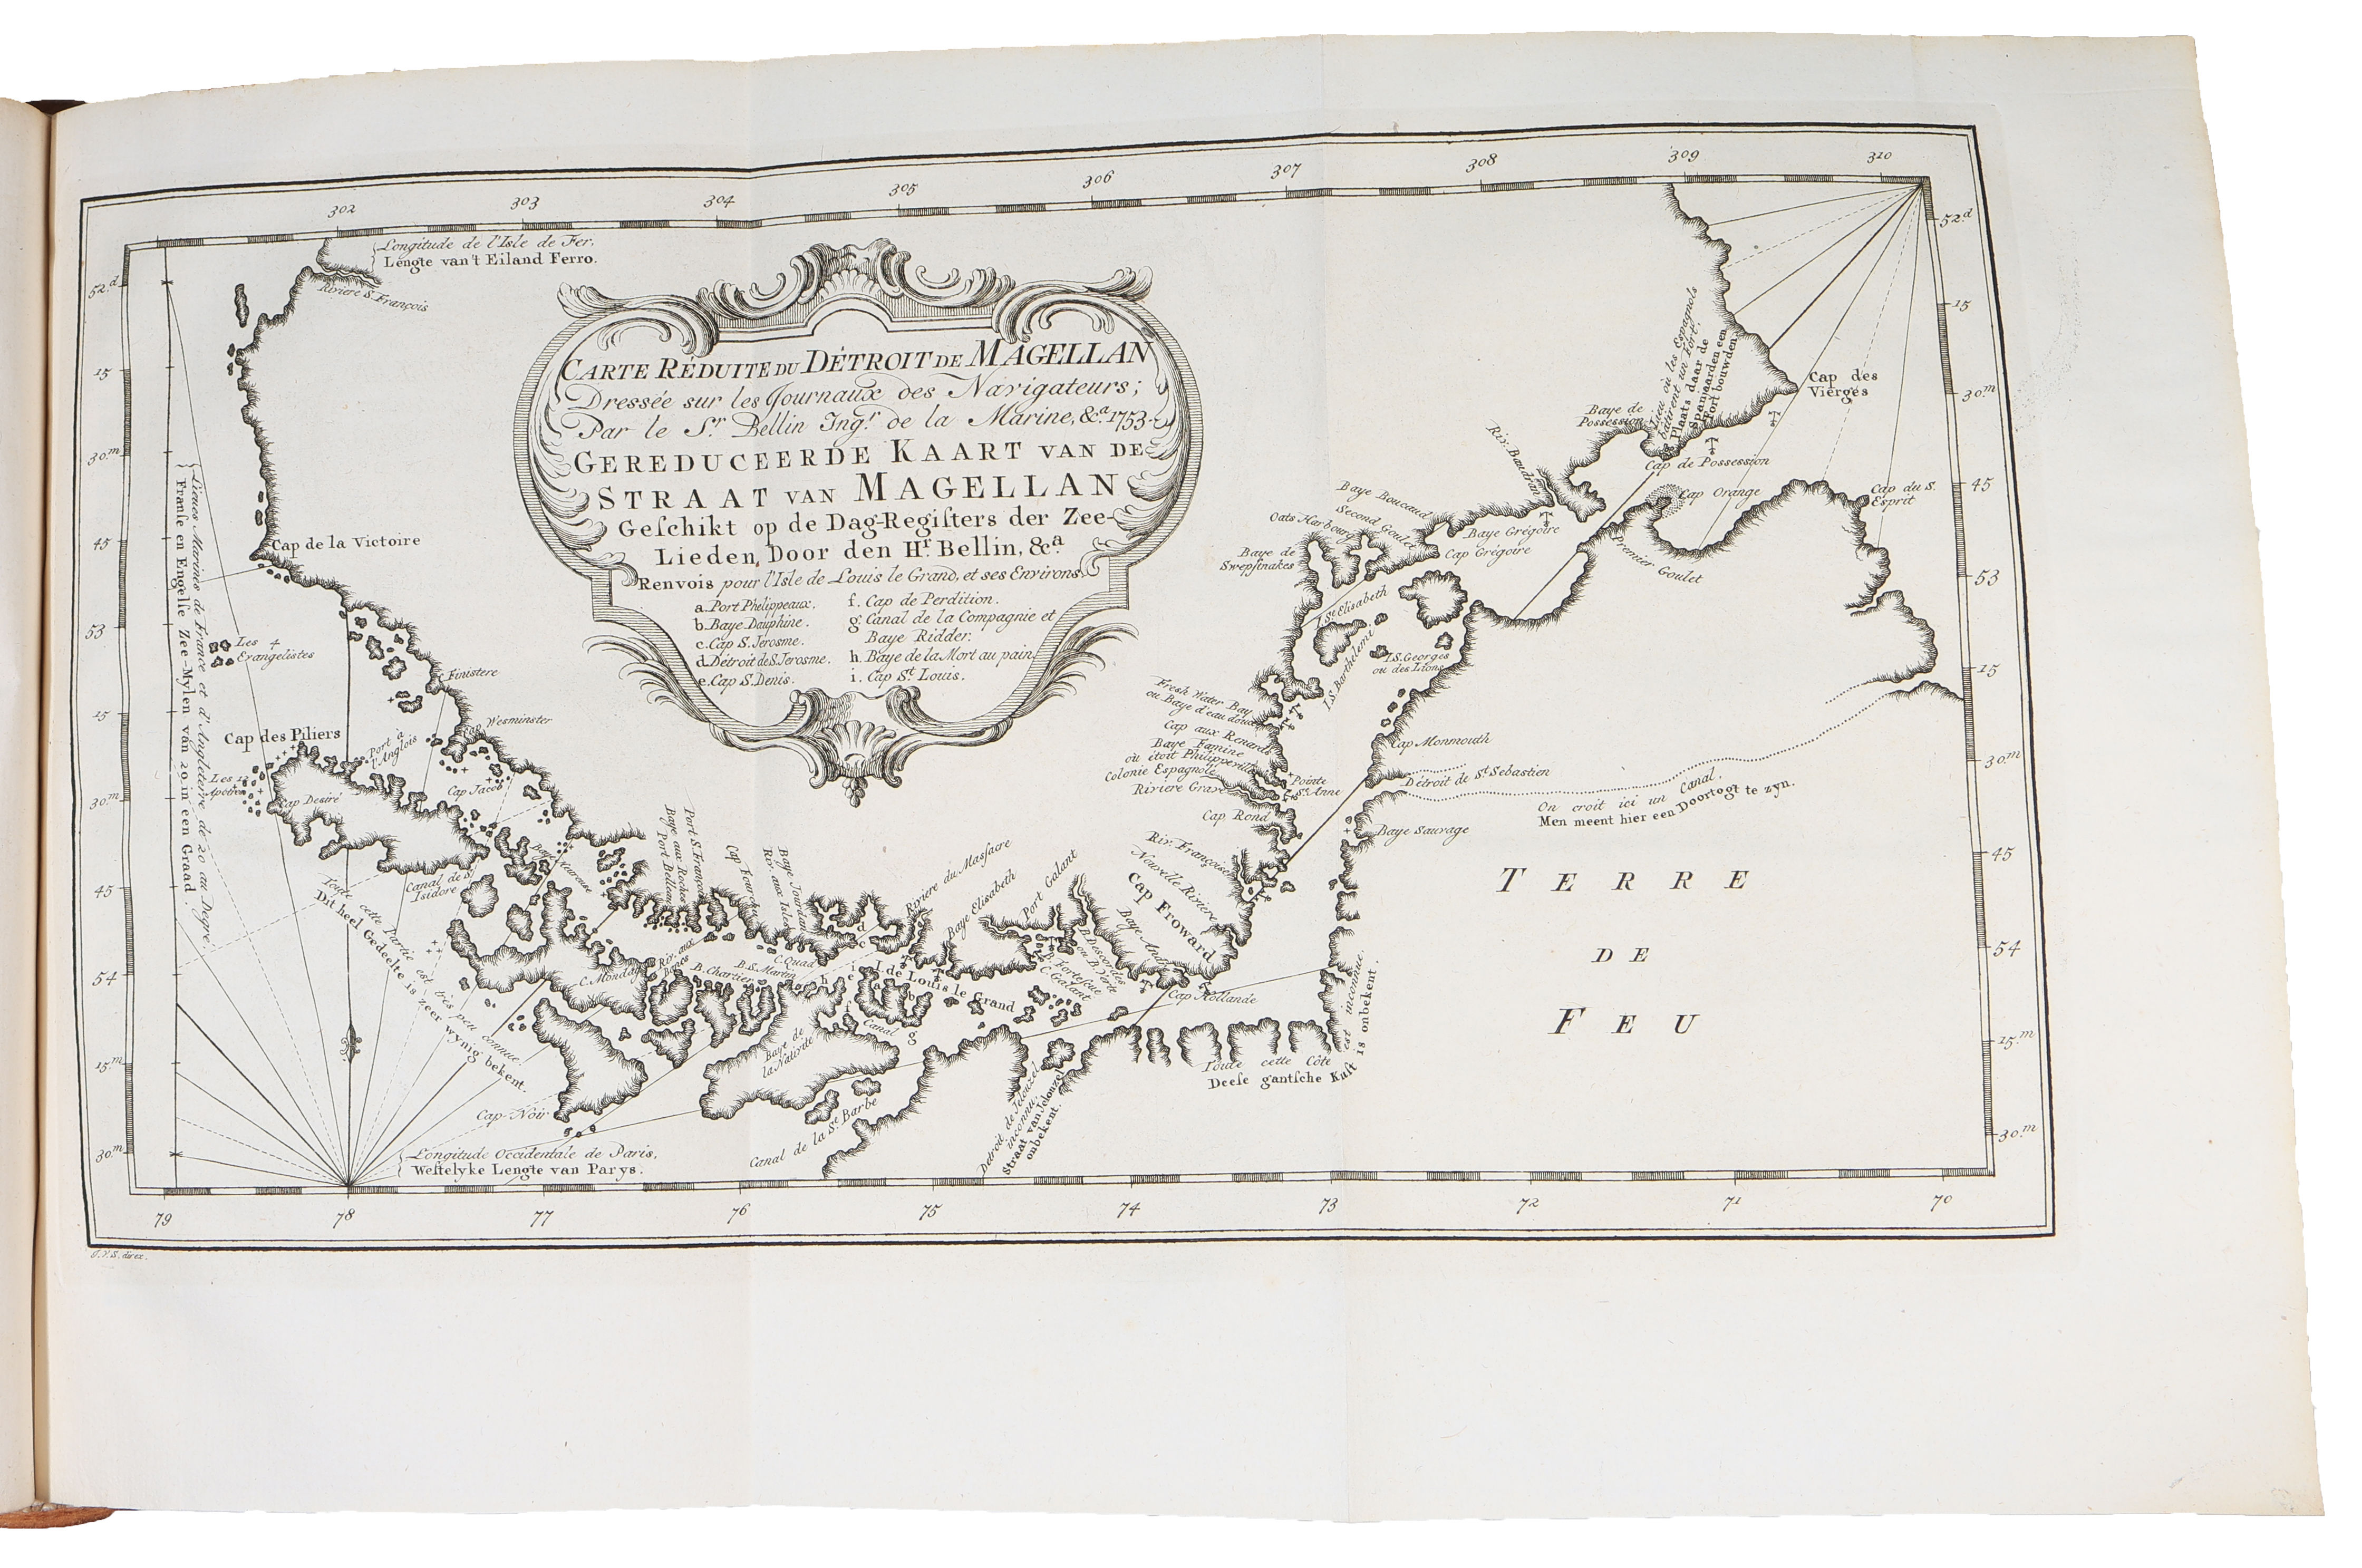 302
303
304
305
306
307
308
309
310
Longitude de l'Isle de Fer.
Lengte van't Eiland Ferro.
Riviere S. François
CARTE RÉDUITE DU DÉTROIT DE MAGELLAN
Dressée sur les Journaux des Navigateurs;
Par le Sr. Bellin Ingr. de la Marine, &ca. 1753.
GEREDUCEERDE KAART VAN DE
STRAAT VAN MAGELLAN
Geschikt op de Dag-Registers der Zee-
Lieden, Door den Hr. Bellin, &ca.
Renvois pour l'Isle de Louis le Grand, et ses Environs.
a. Port Phelippeaux.
b. Baye Dauphine.
c. Cap S. Jerosme.
d. Détroit de S. Jerosme.
e. Cap S. Denis.
f. Cap de Perdition.
g. Canal de la Compagnie et
Baye Ridder.
h. Baye de la Mort au pain.
i. Cap St. Louis.
52.d
15
30.m
45
53
15
30.m
45
54
15.m
30.m
Lieues Marines de France et d'Angleterre de 20 au Degré.
Franse en Engelse Zee-Mylen van 20 in een Graad.
Cap de la Victoire
Les 4
Evangelistes
Finistere
Cap des Piliers
Port à
l'Anglois
Wesminster
Les 12
Apotres
Cap Desiré
Cap Jacob
Canal de S.
Isidore
Toute cette Partie est très peu connue
Dit heel Gedeelte is zeer wynig bekent.
Port S. François
Baye aux Roches
Port Bellen
Cap Fourch
Baye Jourdan
Riv. aux Isles
Riviere du Massacre
Baye Elisabeth
Port Galant
Cap Froward
Baye And
Riv. Françoise
Nouvelle Riviere
C. Monday
B. Chartier
B. S. Martin
C. Quad
d
c
h
i
e
a
b
f
g
I. de Louis le Grand
B. Fortescue
C. Galant
Cap Hollande
Canal
Baye de
la Nativité
Cap Noir
Canal de la Ste Barbe
Détroit de Jelouzel
inconnu
Straat van Jelouzel
onbekent.
Toute cette Côte est inconnue.
Deese gantsche Kust is onbekent.
Longitude Occidentale de Paris,
Westelyke Lengte van Parys.
Lieu où les Espagnols
bâtirent un Fort.
Plaats daar de
Spanjaarden een
Fort bouwden
Cap des
Vierges
Baye de
Possession
Cap de Possession
Riv. Baudran
Cap Orange
Cap du S.
Esprit
Baye Boucaud
Second Goulet
Oats Harbourg
Baye de
Swepstnakes
Baye Grégoire
Cap Grégoire
Premier Goulet
I. St Elisabeth
I. S. Barthelemi
I. S. Georges
ou des Lions
Fresh Water Bay
ou Baye d'eau douce
Cap aux Renards
Baye Famine
où étoit Philippeville
Colonie Espagnole
Riviere Grave
Cap Rond
Pointe
Ste Anne
Cap Monmouth
Détroit de St Sebastien
Baye Sauvage
On croit ici un Canal.
Men meent hier een Doortogt te zyn.
TERRE
DE
FEU
52d
15
30.m
45
53
15
30.m
45
54
15.m
30.m
79
78
77
76
75
74
73
72
71
70
J.V.S. direx.